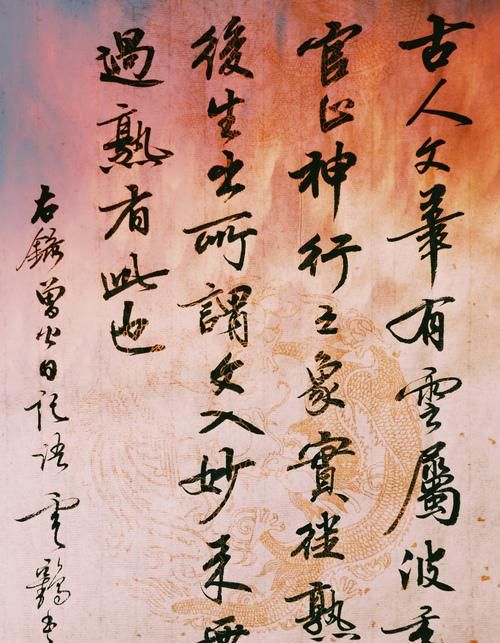 古人文筆有雲屬波委
官止神行之象實從熟
後生出所謂文入妙來無
過熟者此也
右錄曾公日記語 雲鶴書